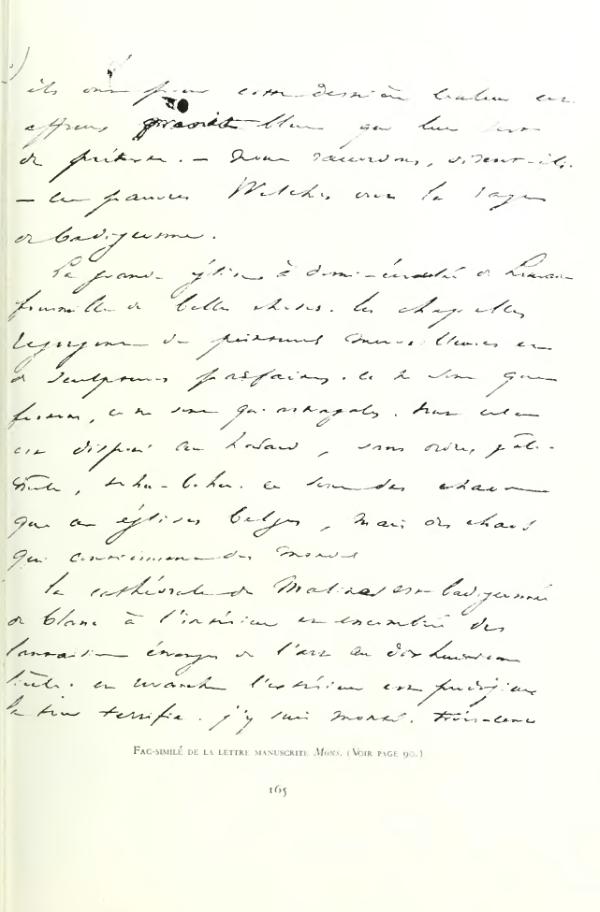 ils ont pour cette dernière couleur un
affreux gris blanc qui leur sert
de prétexte. — Nous raccordons, disent-ils.
— Ces pauvres Welches ont la rage
de badigeonner.
La grande église à demi-écroulée de Louvain
fourmille de belles choses. les chapelles
regorgent de peintures merveilleuses et
de sculptures parfaites. ce ne sont que
festons, ce ne sont qu'astragales. Mais tout cela
est disposé au hasard, sans ordre, pêle-
mêle, brehu-behu. ce sont des chaos
que ces églises belges, mais des chaos
qui contiennent des mondes
la cathédrale de Malines est badigeonnée
de blanc à l'intérieur et encombrée des
l'art du dix-huitième
siècle. en revanche l'extérieur est prodigieux
la tour terrifie. j'y suis monté. trois cent
FAC-SIMILÉ DE LA LETTRE MANUSCRITE MONS. (VOIR PAGE 90.)
165